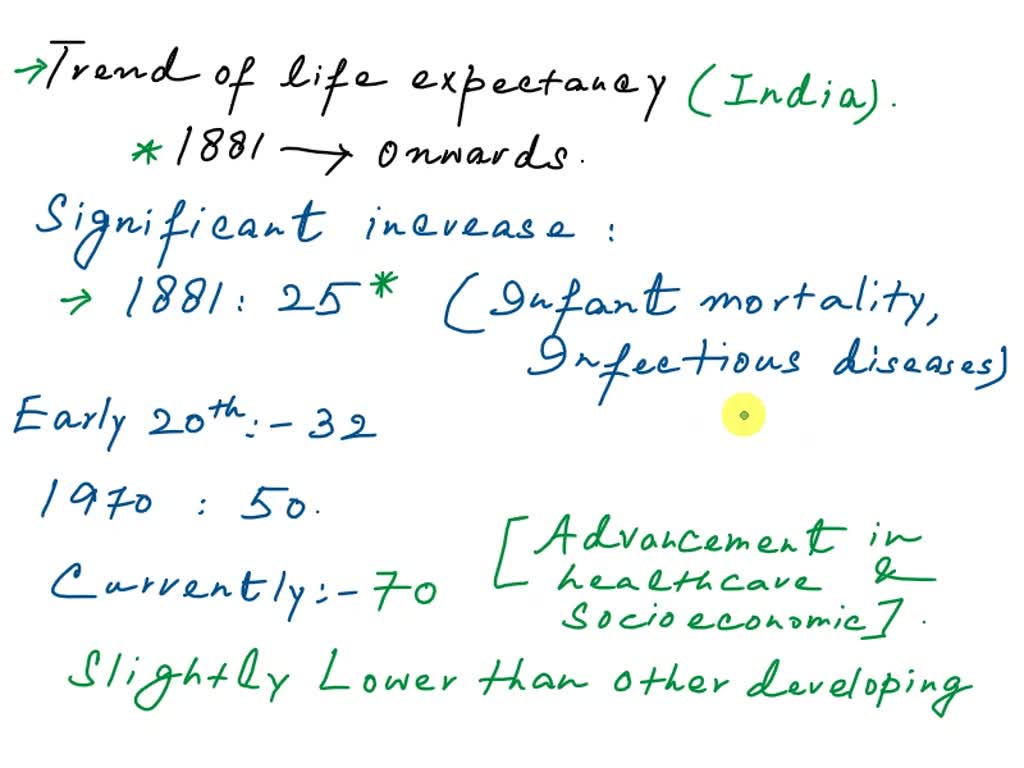 → Trend of life expectancy (India).
* 1881 → onwards.
Significant increase :
→ 1881 : 25 * (Infant mortality,
Infectious diseases)
Early 20th :- 32
1970 : 50.
[Advancement in
Currently :- 70 healthcare &
socioeconomic].
Slightly Lower than other developing